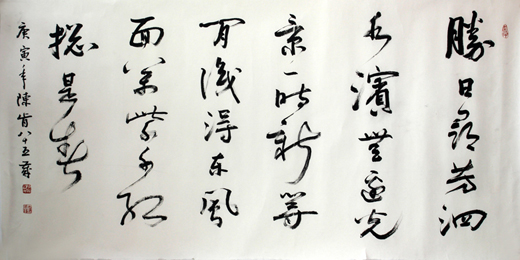 勝日尋芳泗
水濱無邊光
景一時新等
閒識得東風
面萬紫千紅
總是春
庚寅年陳肯八十五歲